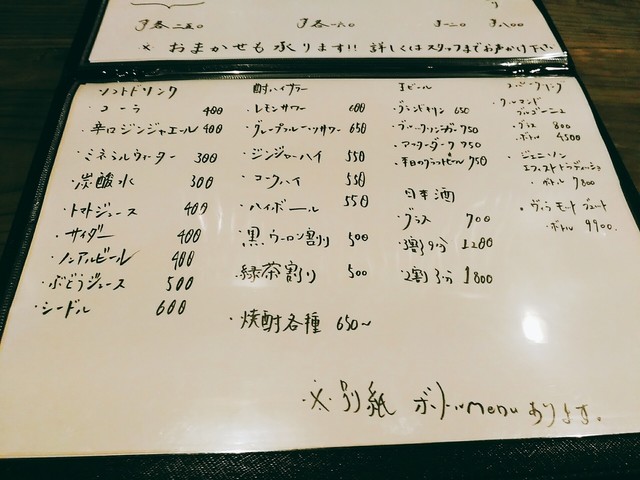 ※ おまかせも承ります!! 詳しくはスタッフまでお声かけ下さい
ソフトドリンク
・コーラ 400
・辛口ジンジャエール 400
・ミネラルウォーター 300
・炭酸水 300
・トマトジュース 400
・サイダー 400
・ノンアルビール 400
・ぶどうジュース 500
・シードル 600
酎ハイサワー
・レモンサワー 600
・グレープフルーツサワー 650
・ジンジャーハイ 550
・コークハイ 550
・ハイボール 550
・黒ウーロン割り 500
・緑茶割り 500
・焼酎各種 650~
生ビール
・グランドキリン 650
750
750
750
日本酒
・グラス 700
1200
1800
スパークリング
・クルーマンド
ブルゴーニュ
・グラス 800
・ボトル 4500
・ボトル 7800
・ボトル 9900.
・※・別紙 ボトルmenuあります。